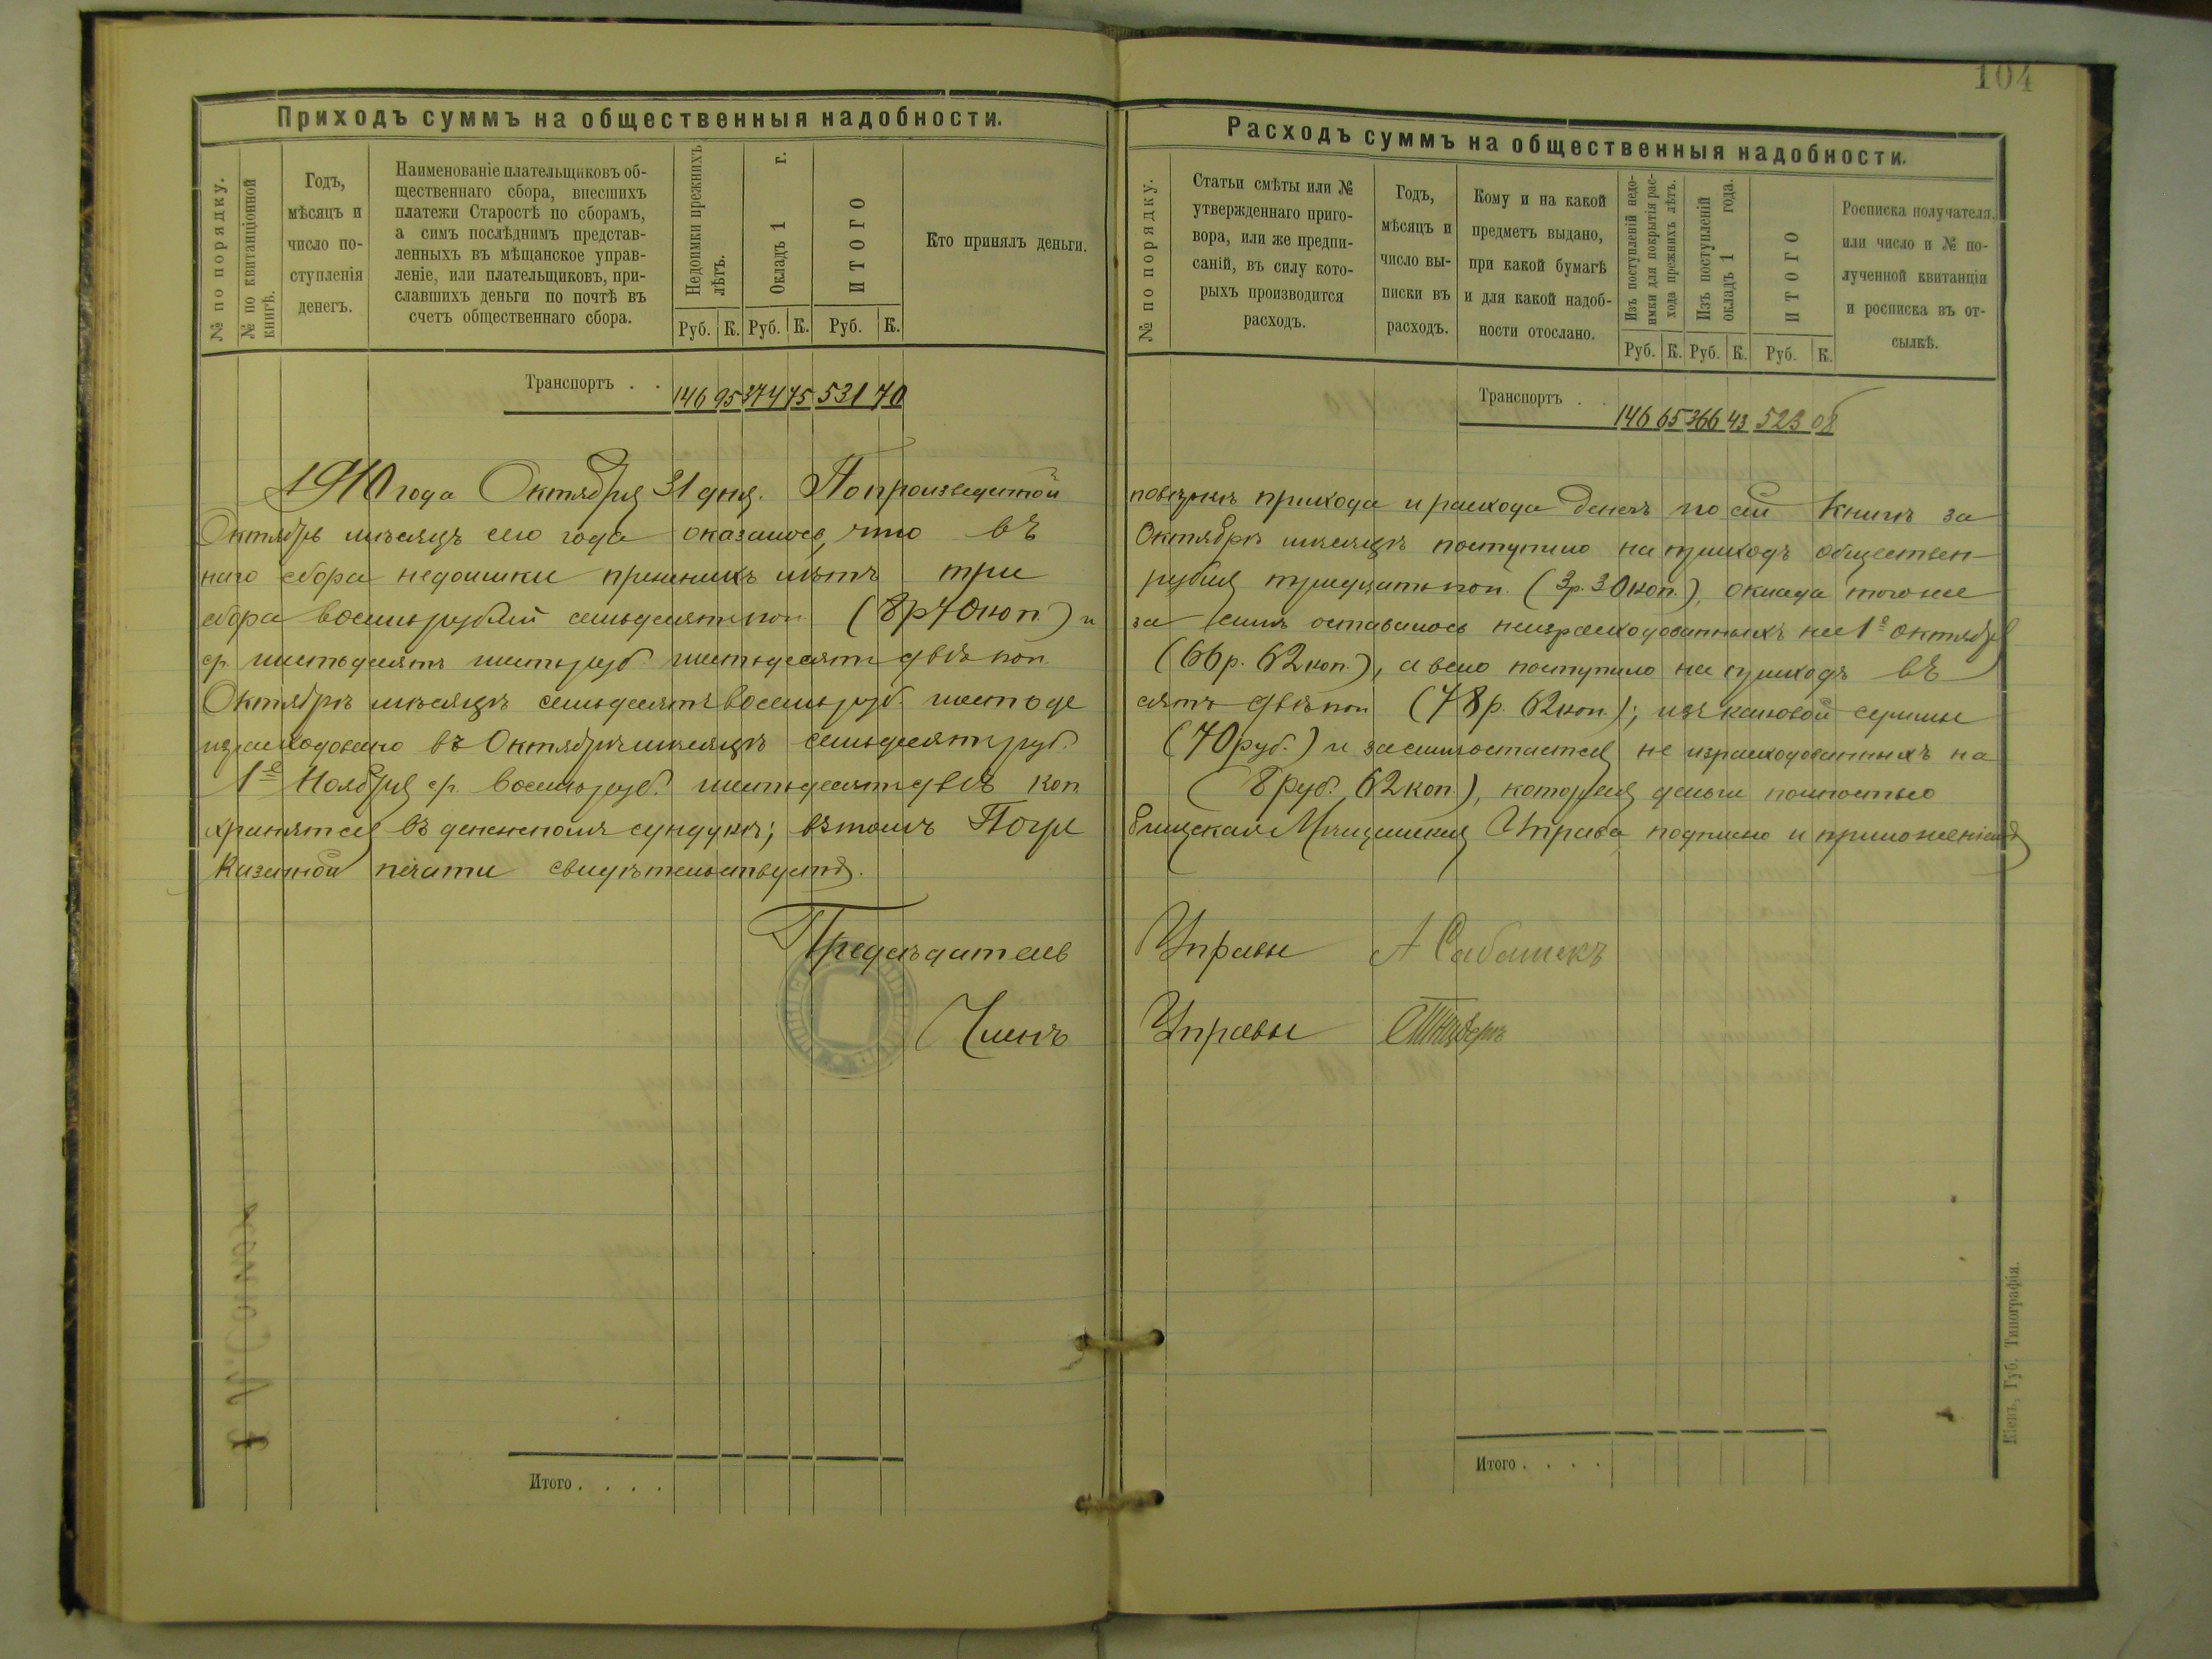 104
Приходъ суммъ на общественныя надобности.
№ по порядку.
№ по квитанціонной книгѣ.
Годъ,
мѣсяцъ и
число по-
ступленія
денегъ.
Наименованіе плательщиковъ об-
щественнаго сбора, внесшихъ
платежи Старостѣ по сборамъ,
а симъ послѣднимъ представ-
ленныхъ въ мѣщанское управ-
леніе, или плательщиковъ, при-
славшихъ деньги по почтѣ въ
счетъ общественнаго сбора.
Недоимки прежнихъ
лѣтъ.
Окладъ 1 г.
ИТОГО
Руб. К. Руб. К. Руб. К.
Кто принялъ деньги.
Транспортъ . . 146 95 374 75 531 70
1910 года Октября 31 дня. По произведенной
Октябрь мѣсяцъ сего года оказалось, что въ
наго сбора недоимки прежнихъ лѣтъ три
сбора восемь рублей семьдесятъ коп. (8 р 70 коп.) и
ср. шестьдесятъ шесть руб. шестьдесятъ двѣ коп.
Октябрѣ мѣсяцѣ семьдесятъ восемь руб. шестьде
израсходовано въ Октябрѣ мѣсяцѣ семьдесятъ руб.
1е Ноября ср. восемь руб. шестьдесятъ двѣ коп
хранятся въ денежномъ сундукѣ; въ томъ Погре
Казенной печати свидѣтельствуетъ.
Предсѣдатель
Членъ
Итого . . . .
Расходъ суммъ на общественныя надобности.
№ по порядку.
Статьи смѣты или №
утвержденнаго приго-
вора, или же предпи-
саній, въ силу кото-
рыхъ производится
расходъ.
Годъ,
мѣсяцъ и
число вы-
писки въ
расходъ.
Кому и на какой
предметъ выдано,
при какой бумагѣ
и для какой надоб-
ности отослано.
Изъ поступленій недо-
имки для покрытія рас-
хода прежнихъ лѣтъ.
Изъ поступленій
окладъ 1 года.
ИТОГО
Руб. К. Руб. К. Руб. К.
Росписка получателя.
или число и № по-
лученной квитанціи
и росписка въ от-
сылкѣ.
Транспортъ . . 146 65 366 43 523 08
повѣркѣ прихода и расхода денегъ по сей книгѣ за
Октябрѣ мѣсяцѣ поступило на приходъ обществен-
рубля тридцать коп. (3 р. 30 коп.), оклада того же
за симъ оставалось неизрасходованныхъ на 1е октября
(66 р. 62 коп.), а всего поступило на приходъ въ
сятъ двѣ коп (78 р. 62 коп.); изъ каковой суммы
(70 руб.) и засимъ остается не израсходованныхъ на
(8 руб. 62 коп.), которыя деньги полностью
бищская Мѣщанская Управа подписью и приложеніемъ
Управы А Сабашекъ
Управы
Итого . . . .
Кіевъ, Губ. Типографія.